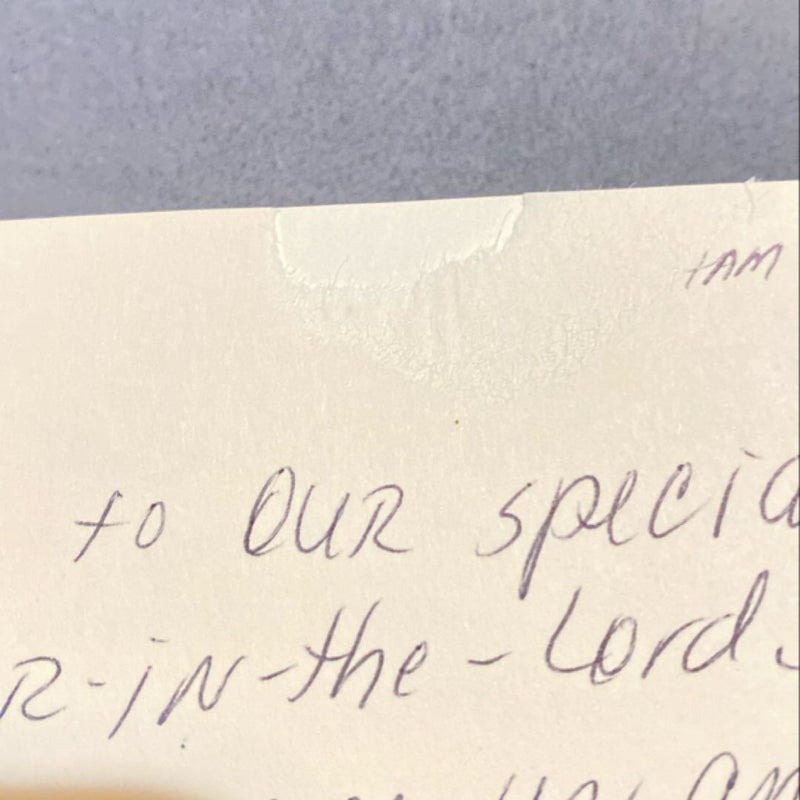 tAM
to OUR specia
R-iN-the-Lord.